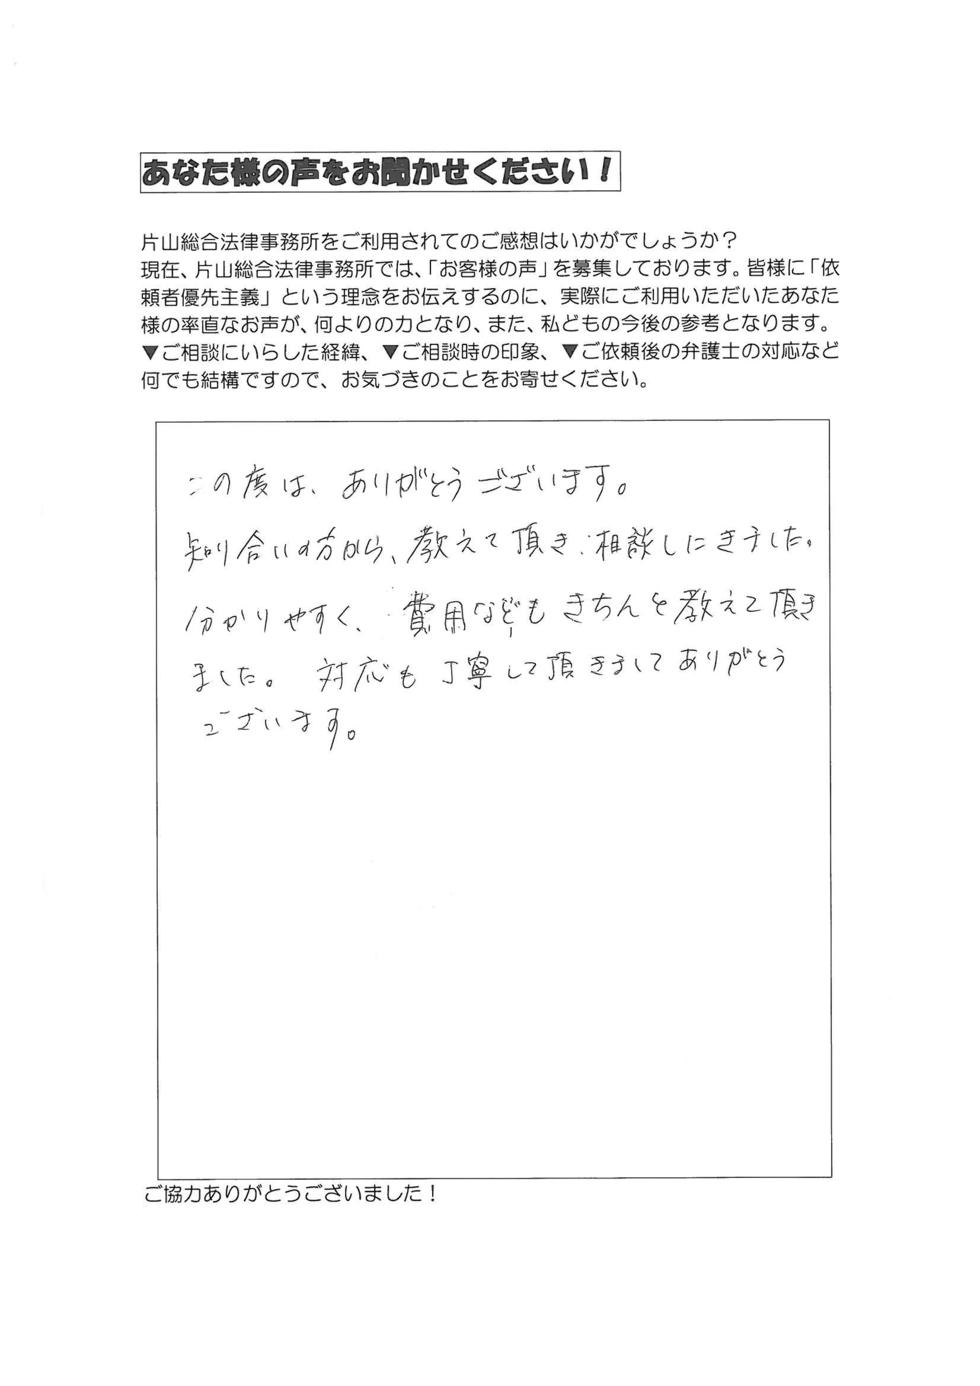 あなた様の声をお聞かせください！
片山総合法律事務所をご利用されてのご感想はいかがでしょうか？
現在、片山総合法律事務所では、「お客様の声」を募集しております。皆様に「依
頼者優先主義」という理念をお伝えするのに、実際にご利用いただいたあなた
様の率直なお声が、何よりの力となり、また、私どもの今後の参考となります。
▼ご相談にいらした経緯、▼ご相談時の印象、▼ご依頼後の弁護士の対応など
何でも結構ですので、お気づきのことをお寄せください。
この度は、ありがとうございます。
知り合いの方から、教えて頂き、相談しにきました。
分かりやすく、費用などもきちんと教えて頂き
ました。対応も丁寧して頂きましてありがとう
ございます。
ご協力ありがとうございました！